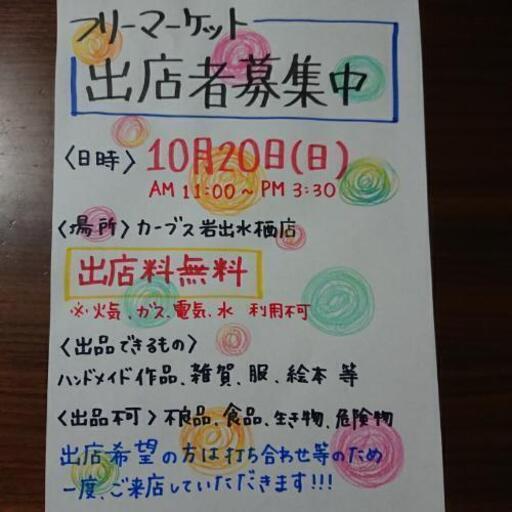 フリーマーケット
出店者募集中
〈日時〉10月20日(日)
AM 11:00~PM 3:30
〈場所〉カーブス岩出水栖店
出店料無料
※火気、ガス、電気、水 利用不可
〈出品できるもの〉
ハンドメイド作品、雑賀、服、絵本 等
〈出品不可〉不良品、食品、生き物、危険物
出店希望の方は打ち合わせ等のため
一度、ご来店していただきます!!!